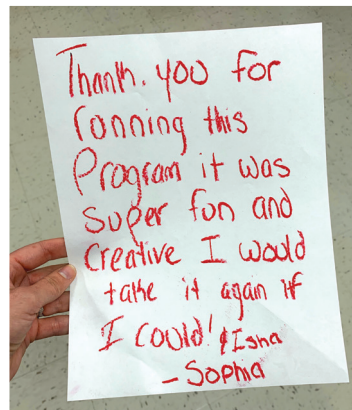 Thank. you for
ronning this
Program it was
super fon and
Creative I would
take it again if
I could! & Isha
- Sophia